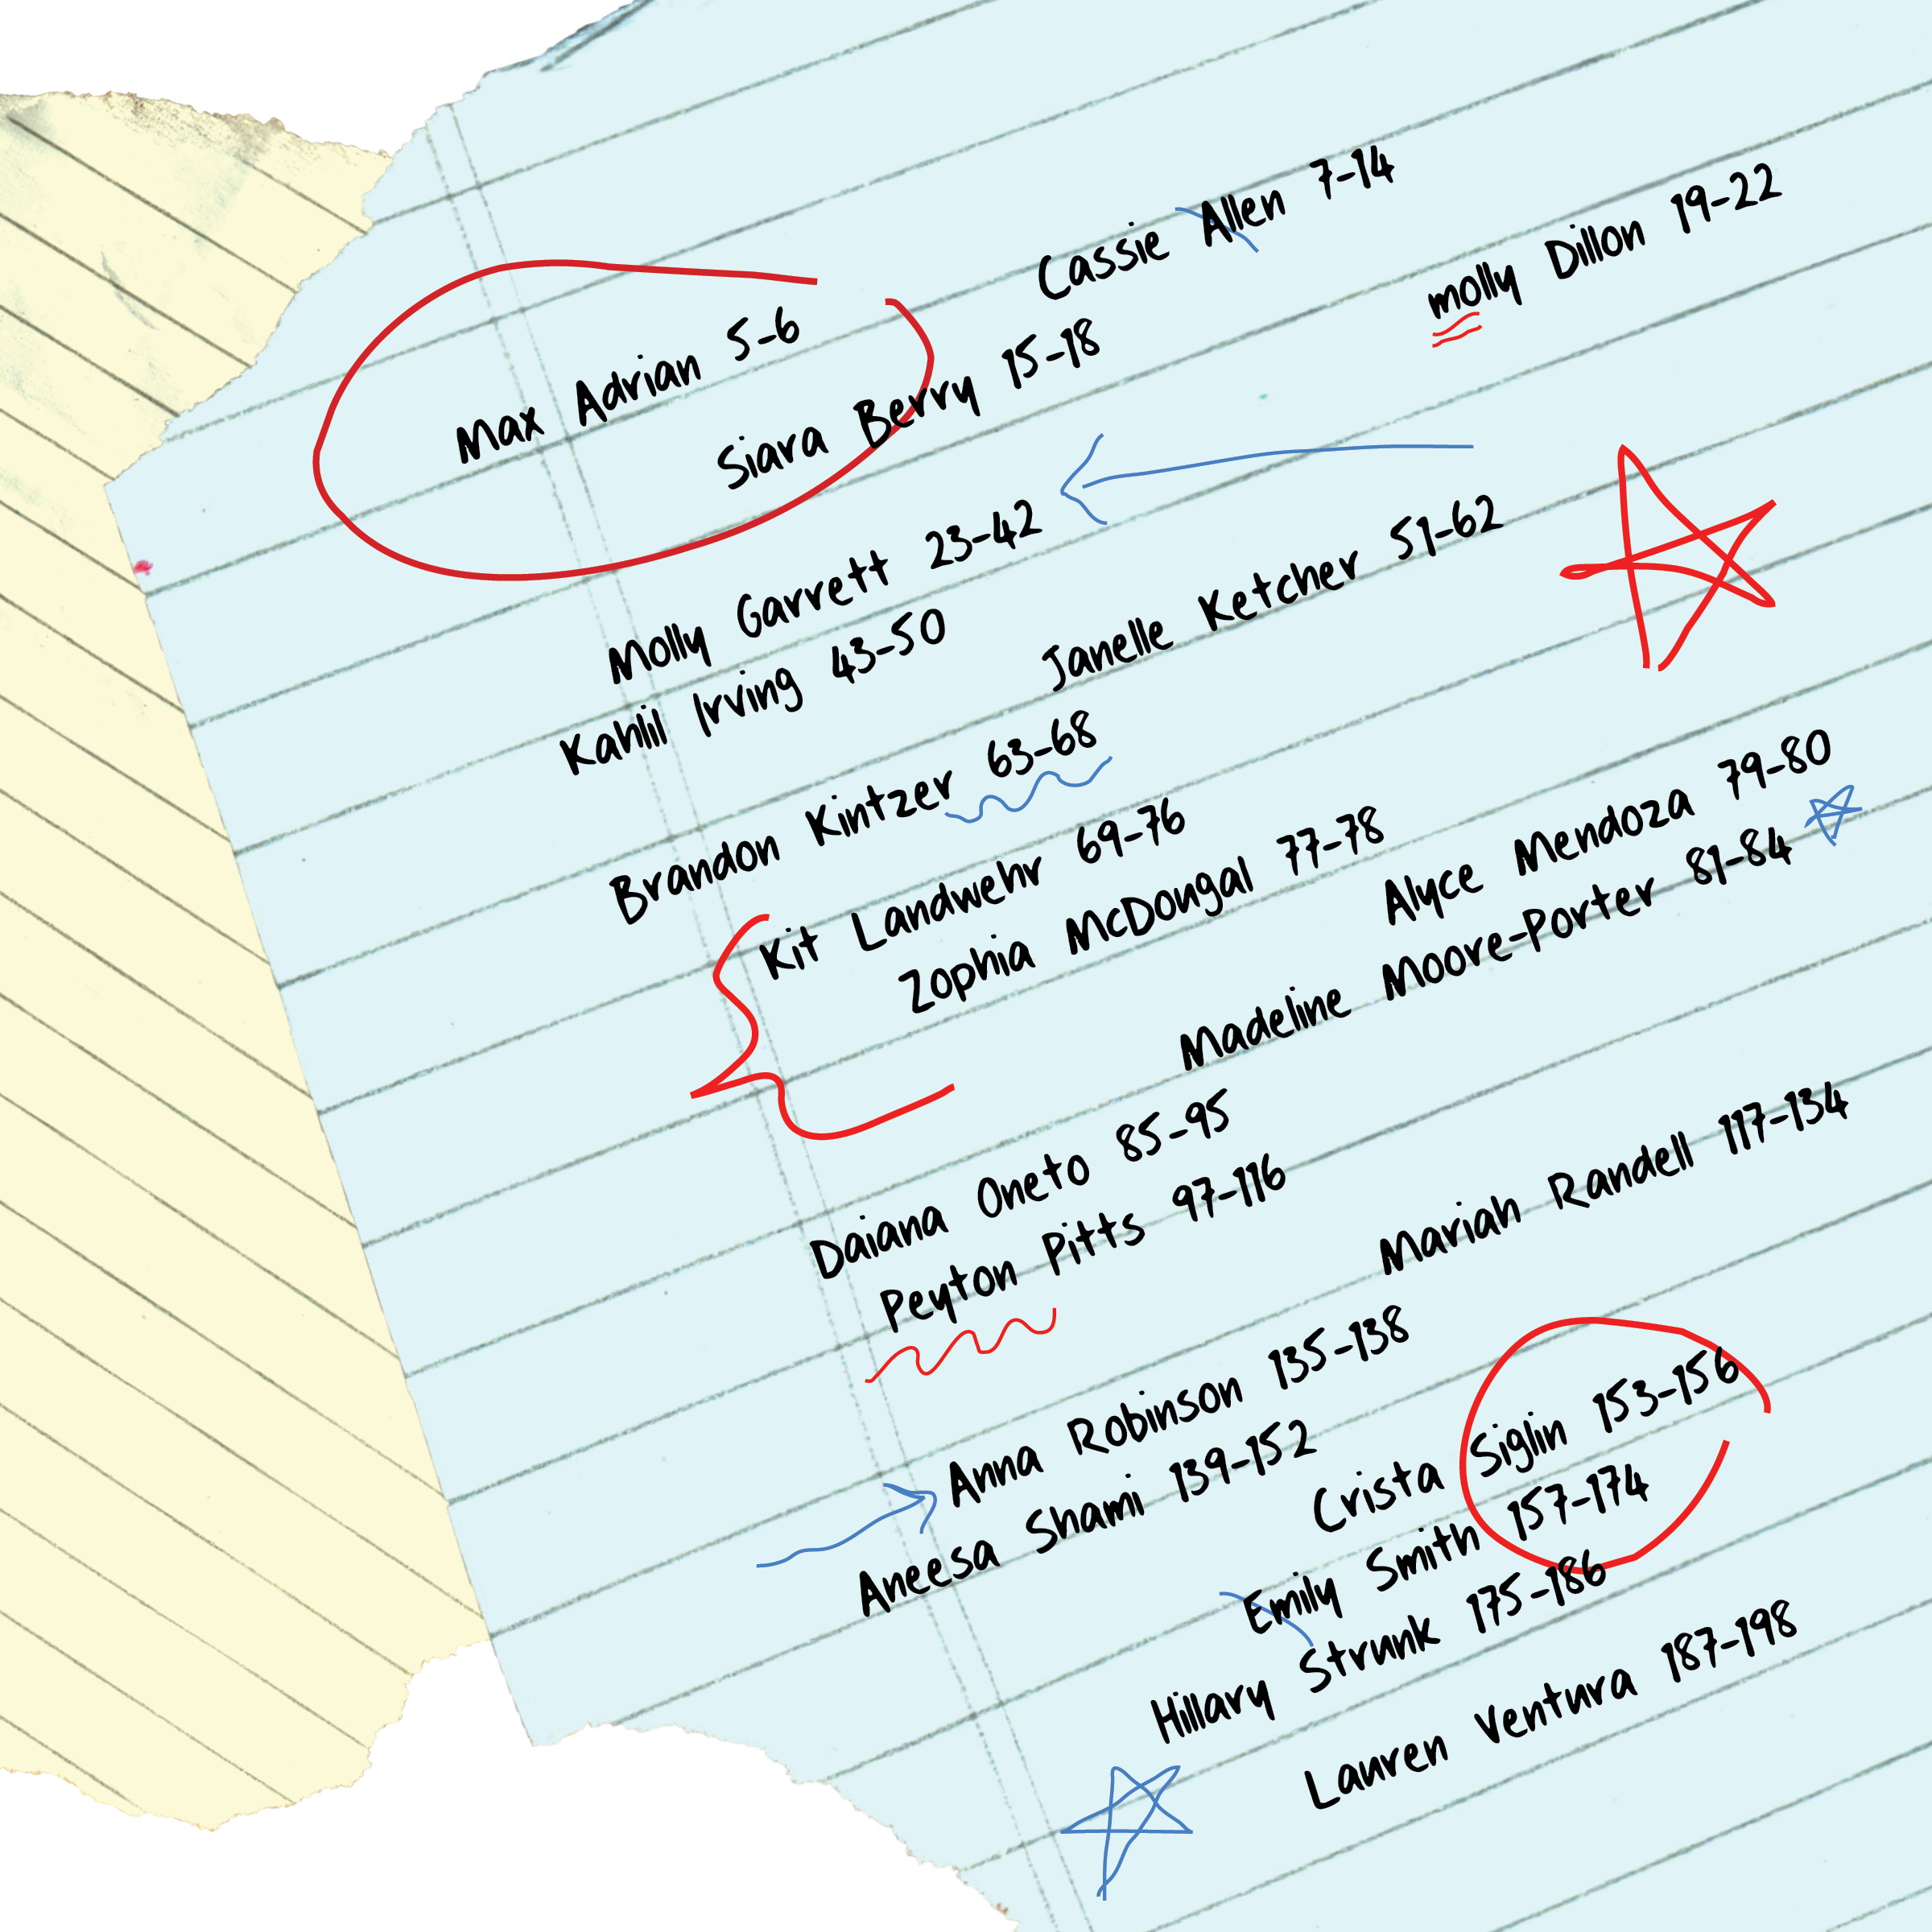 Max Adrian 5-6
Cassie Allen 7-14
Siara Berry 15-18
molly Dillon 19-22
Molly Garrett 23-42
Kahlil Irving 43-50
Janelle Ketcher 51-62
Brandon Kintzer 63-68
Kit Landwehr 69-76
Zophia McDougal 77-78
Alyce Mendoza 79-80
Madeline Moore-Porter 81-84
Daiana Oneto 85-95
Peyton Pitts 97-116
Mariah Randell 117-134
Anna Robinson 135-138
Aneesa Shami 139-152
Crista Siglin 153-156
Emily Smith 157-174
Hillary Strunk 175-186
Lauren Ventura 187-198